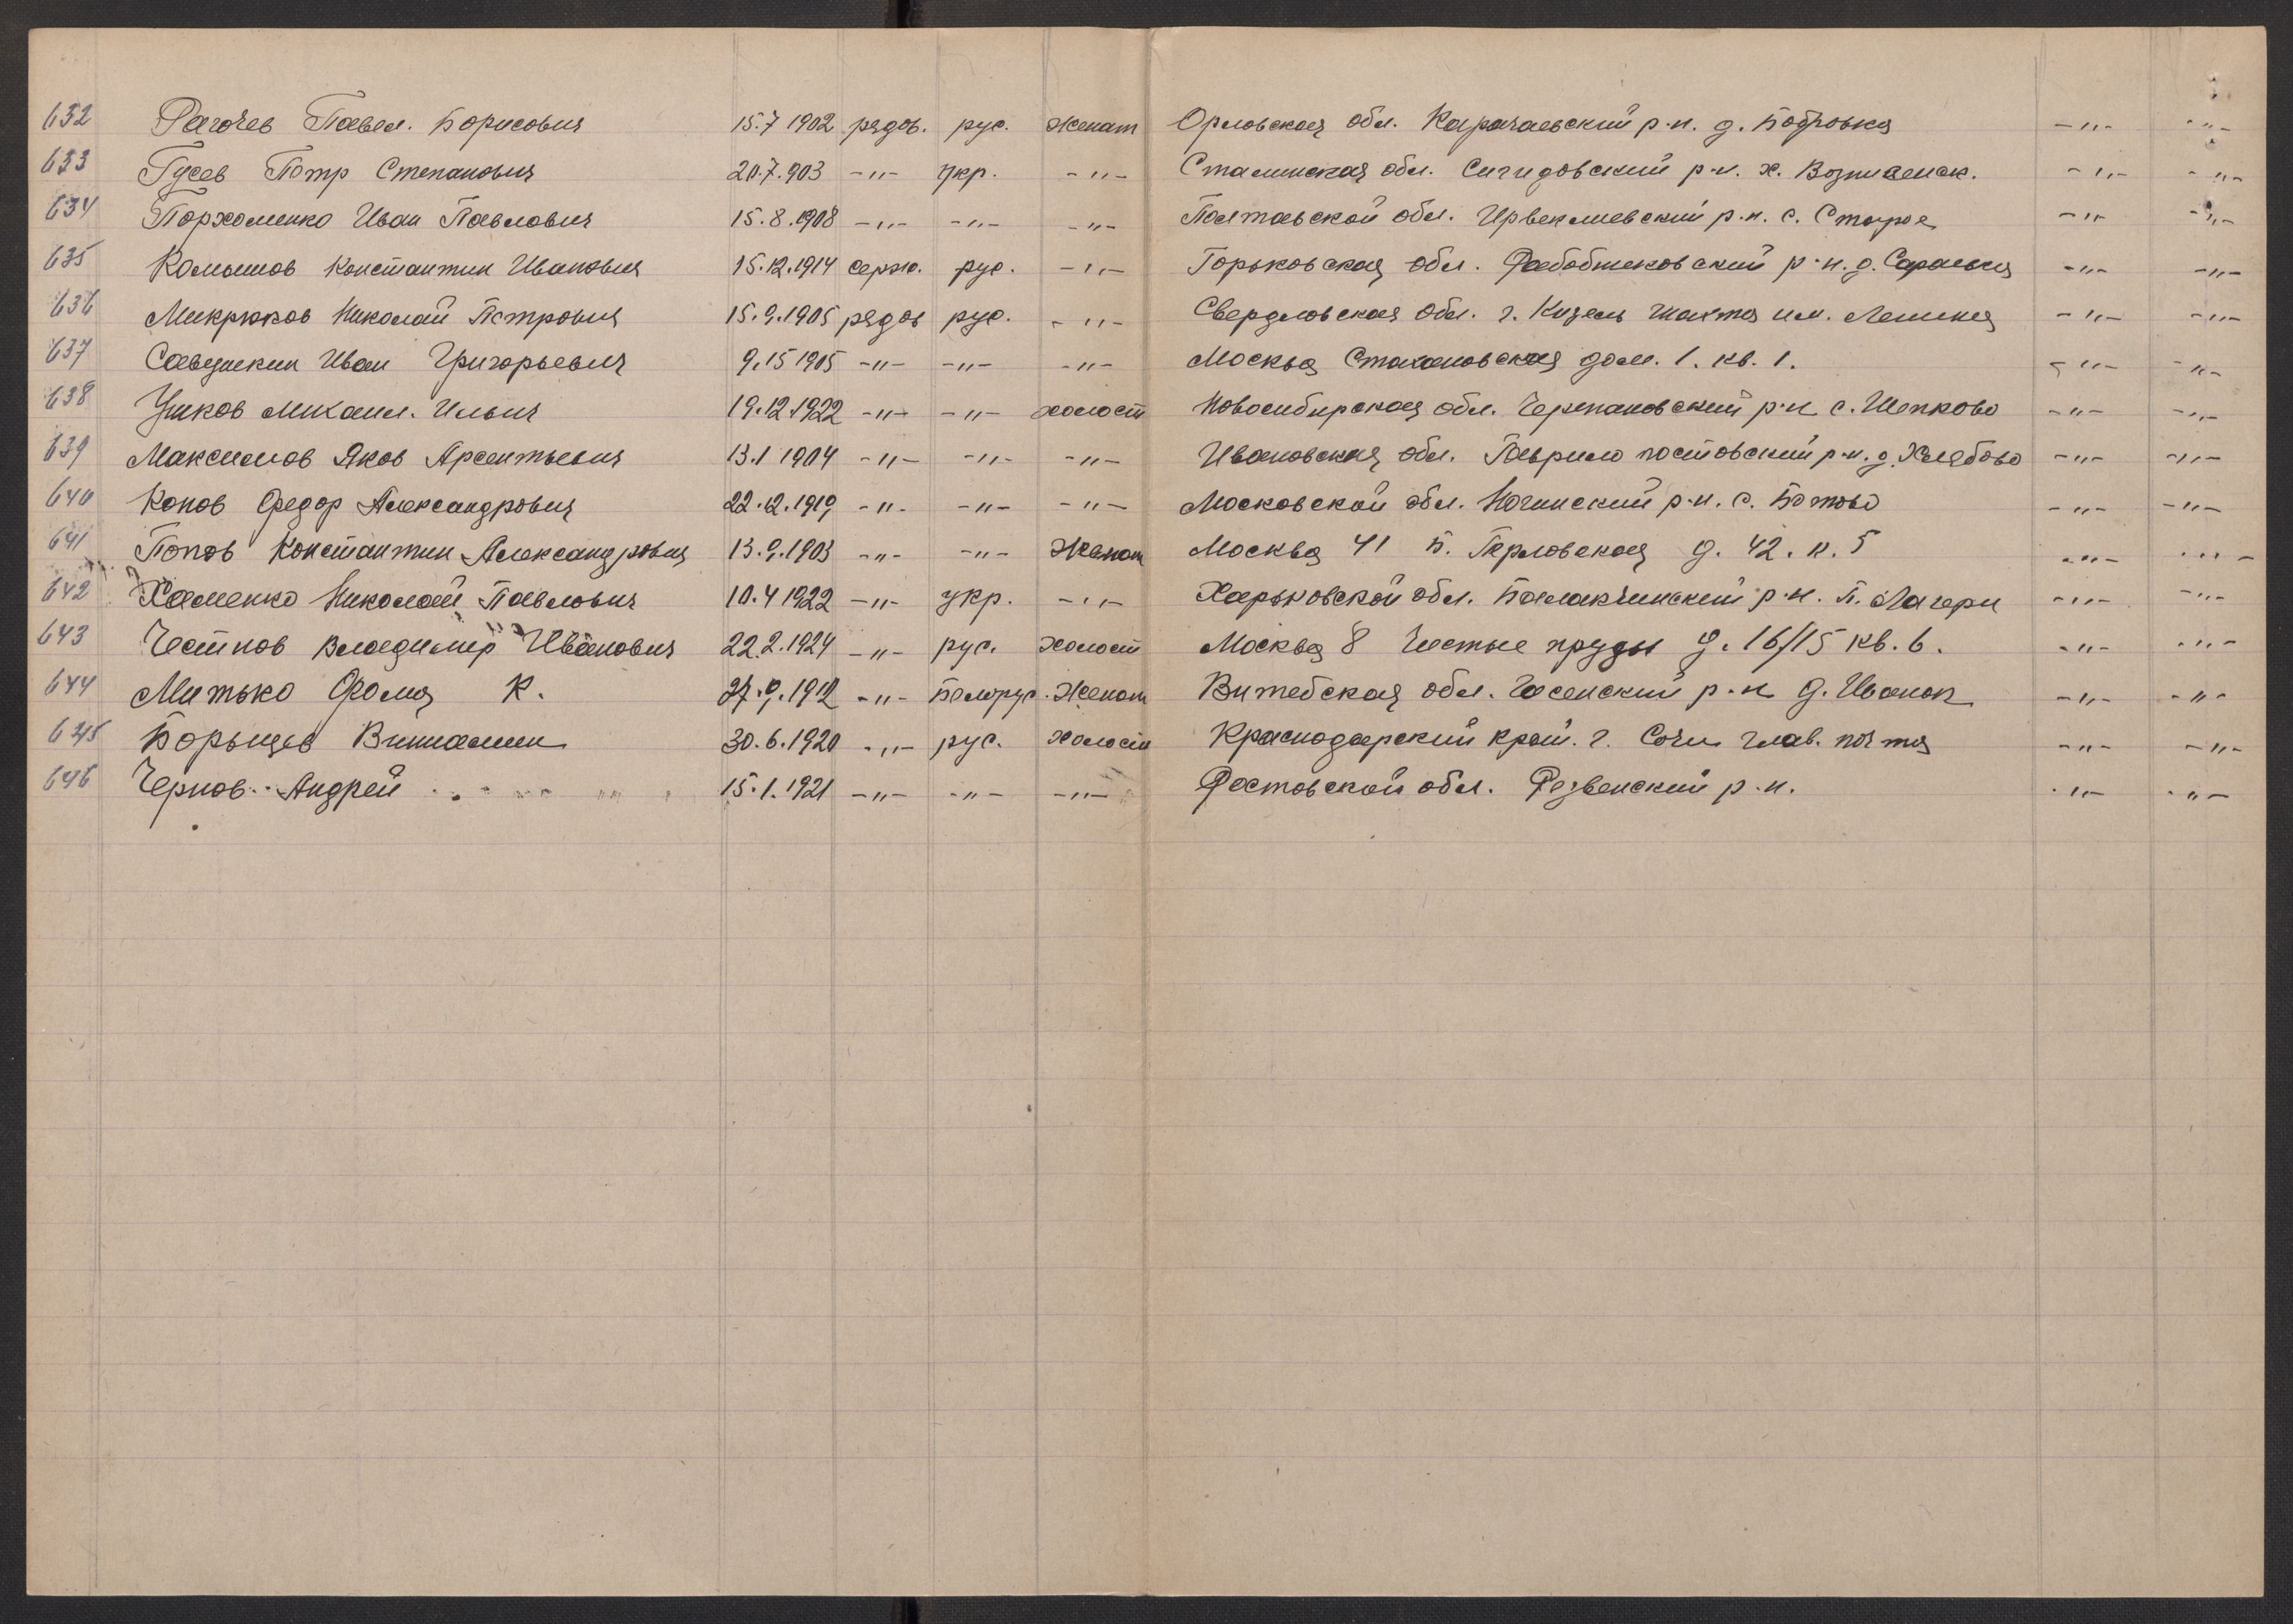 632 Рагочев Павел. Борисович 15.7 1902 рядов. рус. женат Орловская обл. Карачаевский р-н. д. Бобровка -"- -"-
633 Гусев Петр Степанович 20.7.903 -"- укр. -"- Сталинская обл. р-н. х. -"- -"-
634 Порхоменко Иван Павлович 15.8.1908 -"- -"- -"- Полтавской обл. Ирвеклиевский р-н. с. Старое -"- -"-
635 Константин Иванович 15.12.1914 серж. рус. -"- Горьковская обл. р-н. д. -"- -"-
636 Микрюков Николай Петрович 15.9.1905 рядов рус. -"- Свердловская обл. г. Кизель шахта им. Ленина -"- -"-
637 Савушкин Иван Григорьевич 9.15 1905 -"- -"- -"- Москва Стахановская дом. 1. кв. 1. -"- -"-
638 Ушков Михаил. Ильич 19.12.1922 -"- -"- холост Новосибирская обл. Черепановский р-н с. Шепково -"- -"-
639 Максимов Яков Арсентьевич 13.1 1904 -"- -"- -"- Ивановская обл. Гаврило постовский р-н. д. Хлябово -"- -"-
640 Конов Федор Александрович 22.12.1919 -"- -"- -"- Московской обл. Ногинский р-н. с. Ботово -"- -"-
641 Попов Константин Александрович 13.9.1903 -"- -"- Женат Москва 41 Б. Перловская д. 42. к. 5 -"- -"-
642 Хаменко Николай Павлович 10.4 1922 -"- укр. -"- Харьковской обл. Балакчинский р-н. П. Лагери -"- -"-
643 Честнов Владимир Иванович 22.2.1924 -"- рус. холост Москва 8 Чистые пруды д. 16/15 кв. 6. -"- -"-
644 Митько Фома К. 27.9.1912 -"- Белорус. Женат Витебская обл. р-н д. Иванок -"- -"-
645 Борьщев Виниамин 30.6.1920 -"- рус. холост Краснодарский край. г. Сочи глав. почта -"- -"-
646 Чернов Андрей 15.1.1921 -"- -"- -"- Ростовской обл. Резвенский р-н. -"- -"-